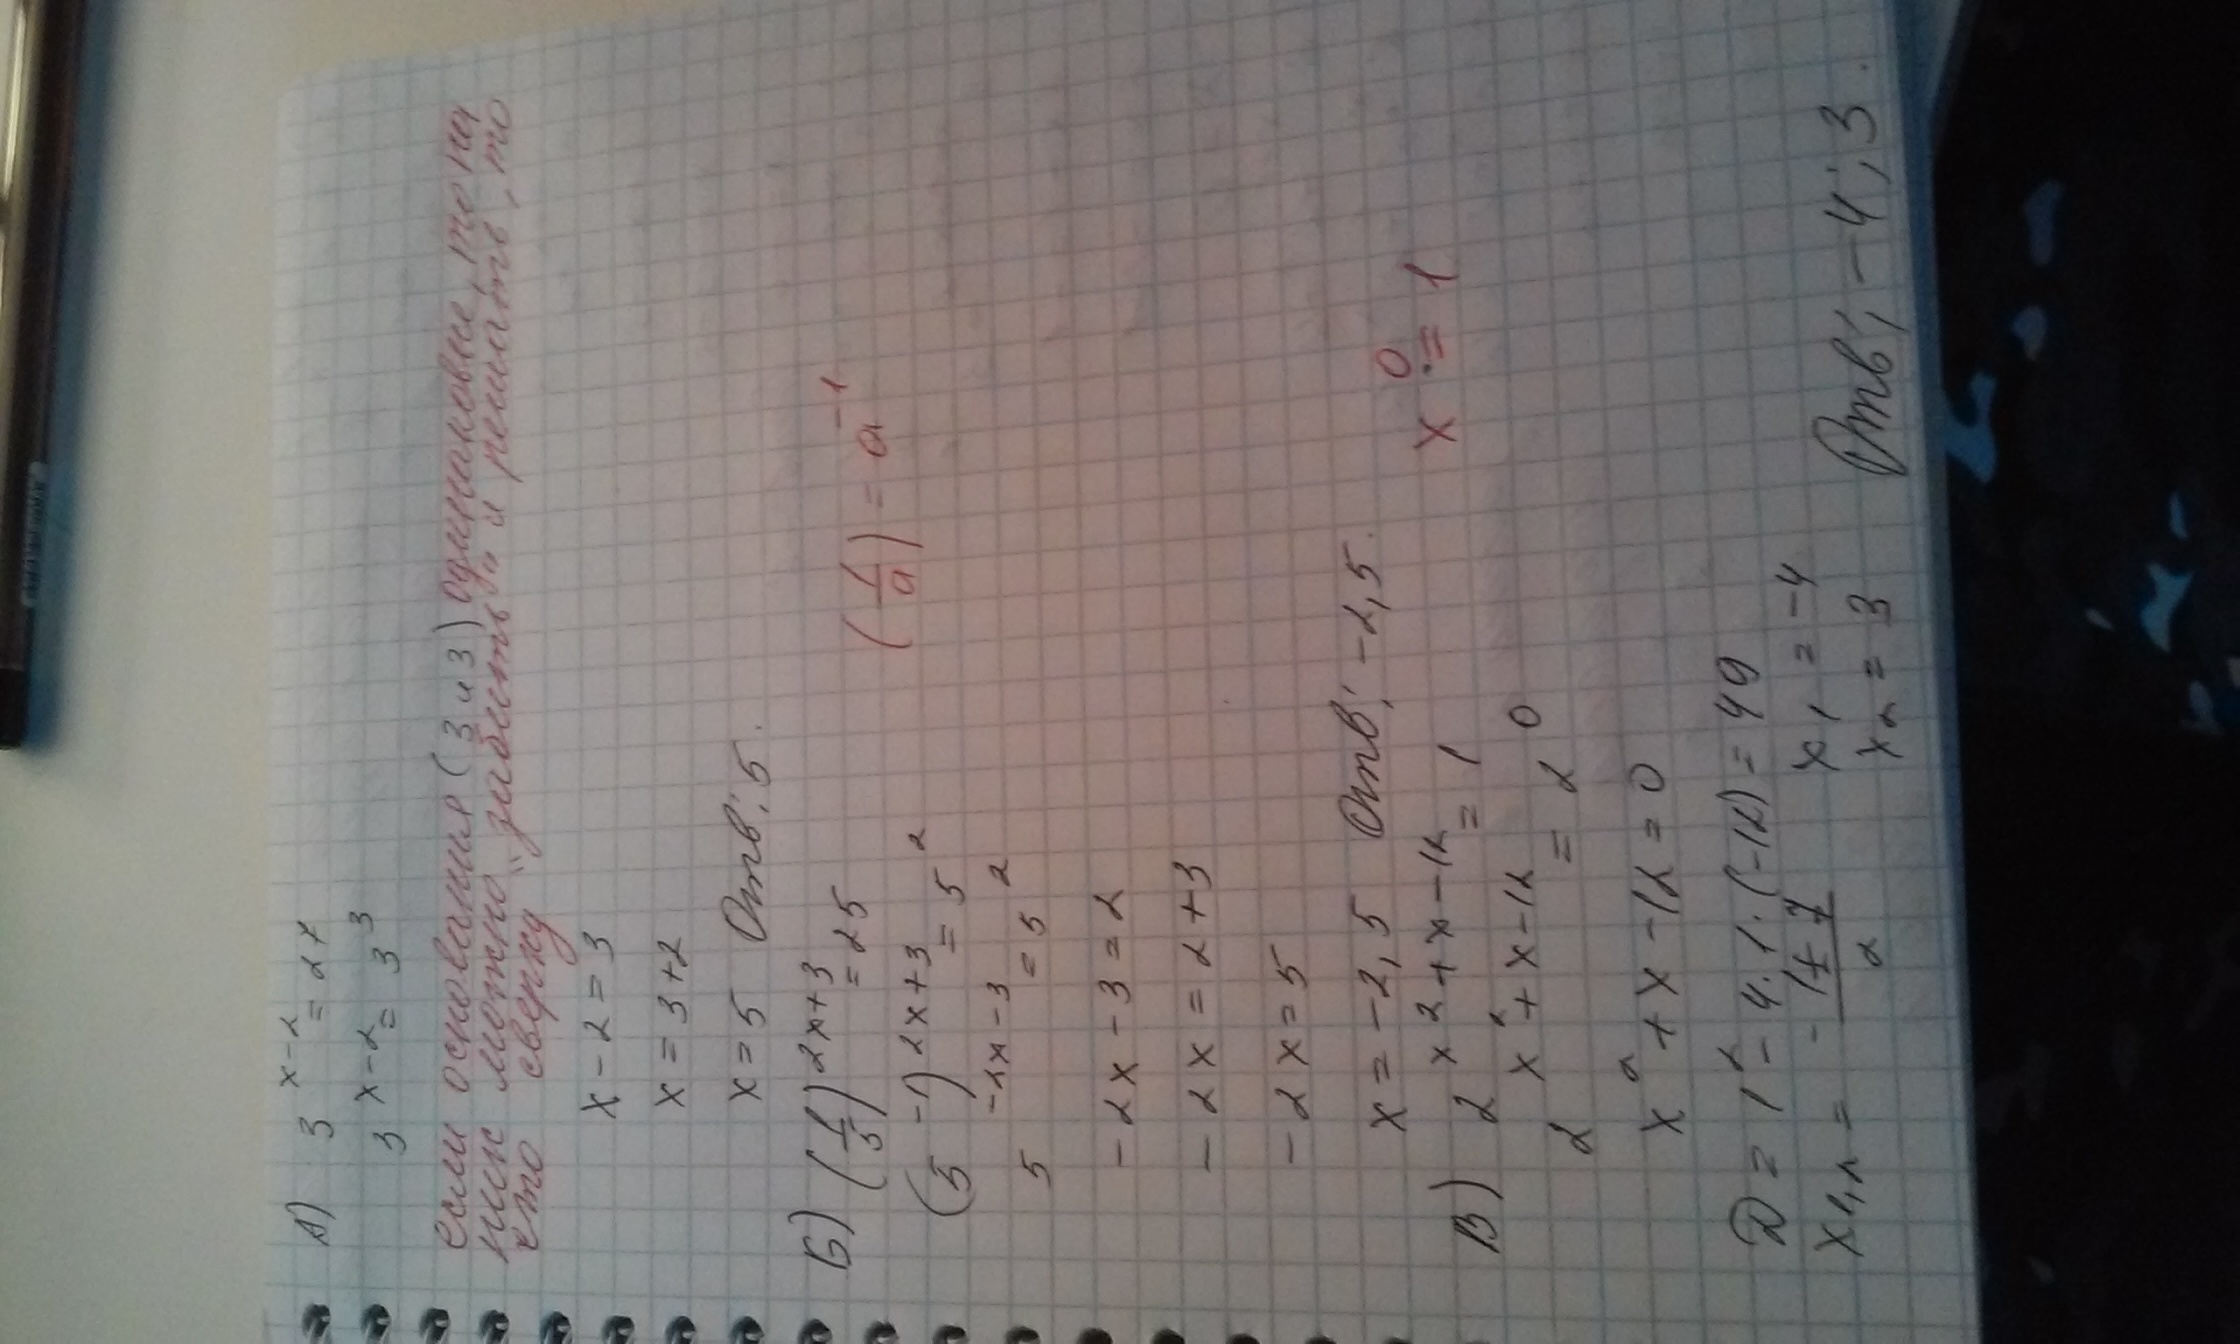 А) 3^(x-2) = 27
3^(x-2) = 3^3
если основания (3 и 3) одинаковые, то на
них можно "забить" и решать, то
что сверху
x - 2 = 3
x = 3 + 2
x = 5 Отв: 5.
Б) (1/5)^(2x+3) = 25 (1/a) = a^(-1)
(5^(-1))^(2x+3) = 5^2
5^(-2x-3) = 5^2
-2x - 3 = 2
-2x = 2 + 3
-2x = 5
x = -2,5 Отв: -2,5.
В) 2^(x^2+x-12) = 1 x^0 = 1
2^(x^2+x-12) = 2^0
x^2 + x - 12 = 0
D = 1^2 - 4·1·(-12) = 49
x1,2 = (-1±7)/2 x1 = -4
x2 = 3 Отв: -4; 3.